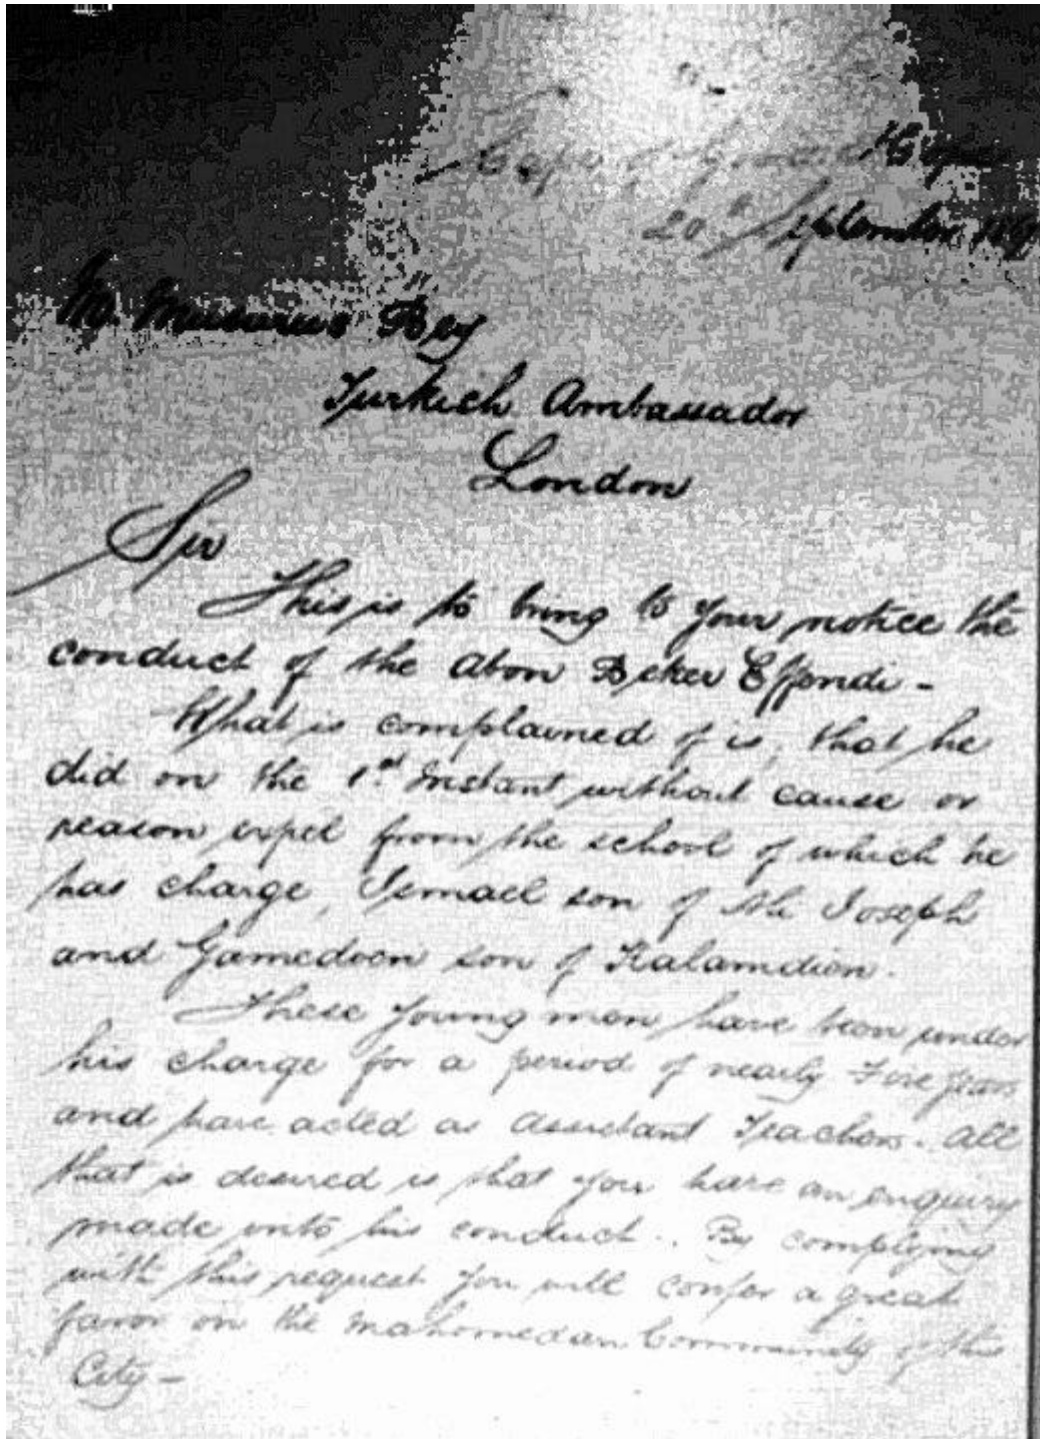 Cape of Good Hope
20th September 189
M. Musurus Bey
Turkich Ambassador
London
Sir
This is to bring to your notice the
conduct of the Abon Beker Effendi -
What is complained of is, that he
did on the 1st Instant without cause or
reason expel from the school of which he
has charge, Ismael son of Joseph
and Gamedoen son of Kalamdien.
These young men have been under
his charge for a period of nearly Five years
and have acted as Assistant Teachers. All
that is desired is that you have an enquiry
made into his conduct. By complying
with this request you will confer a great
favor on the Mahomedan Community of this
City -